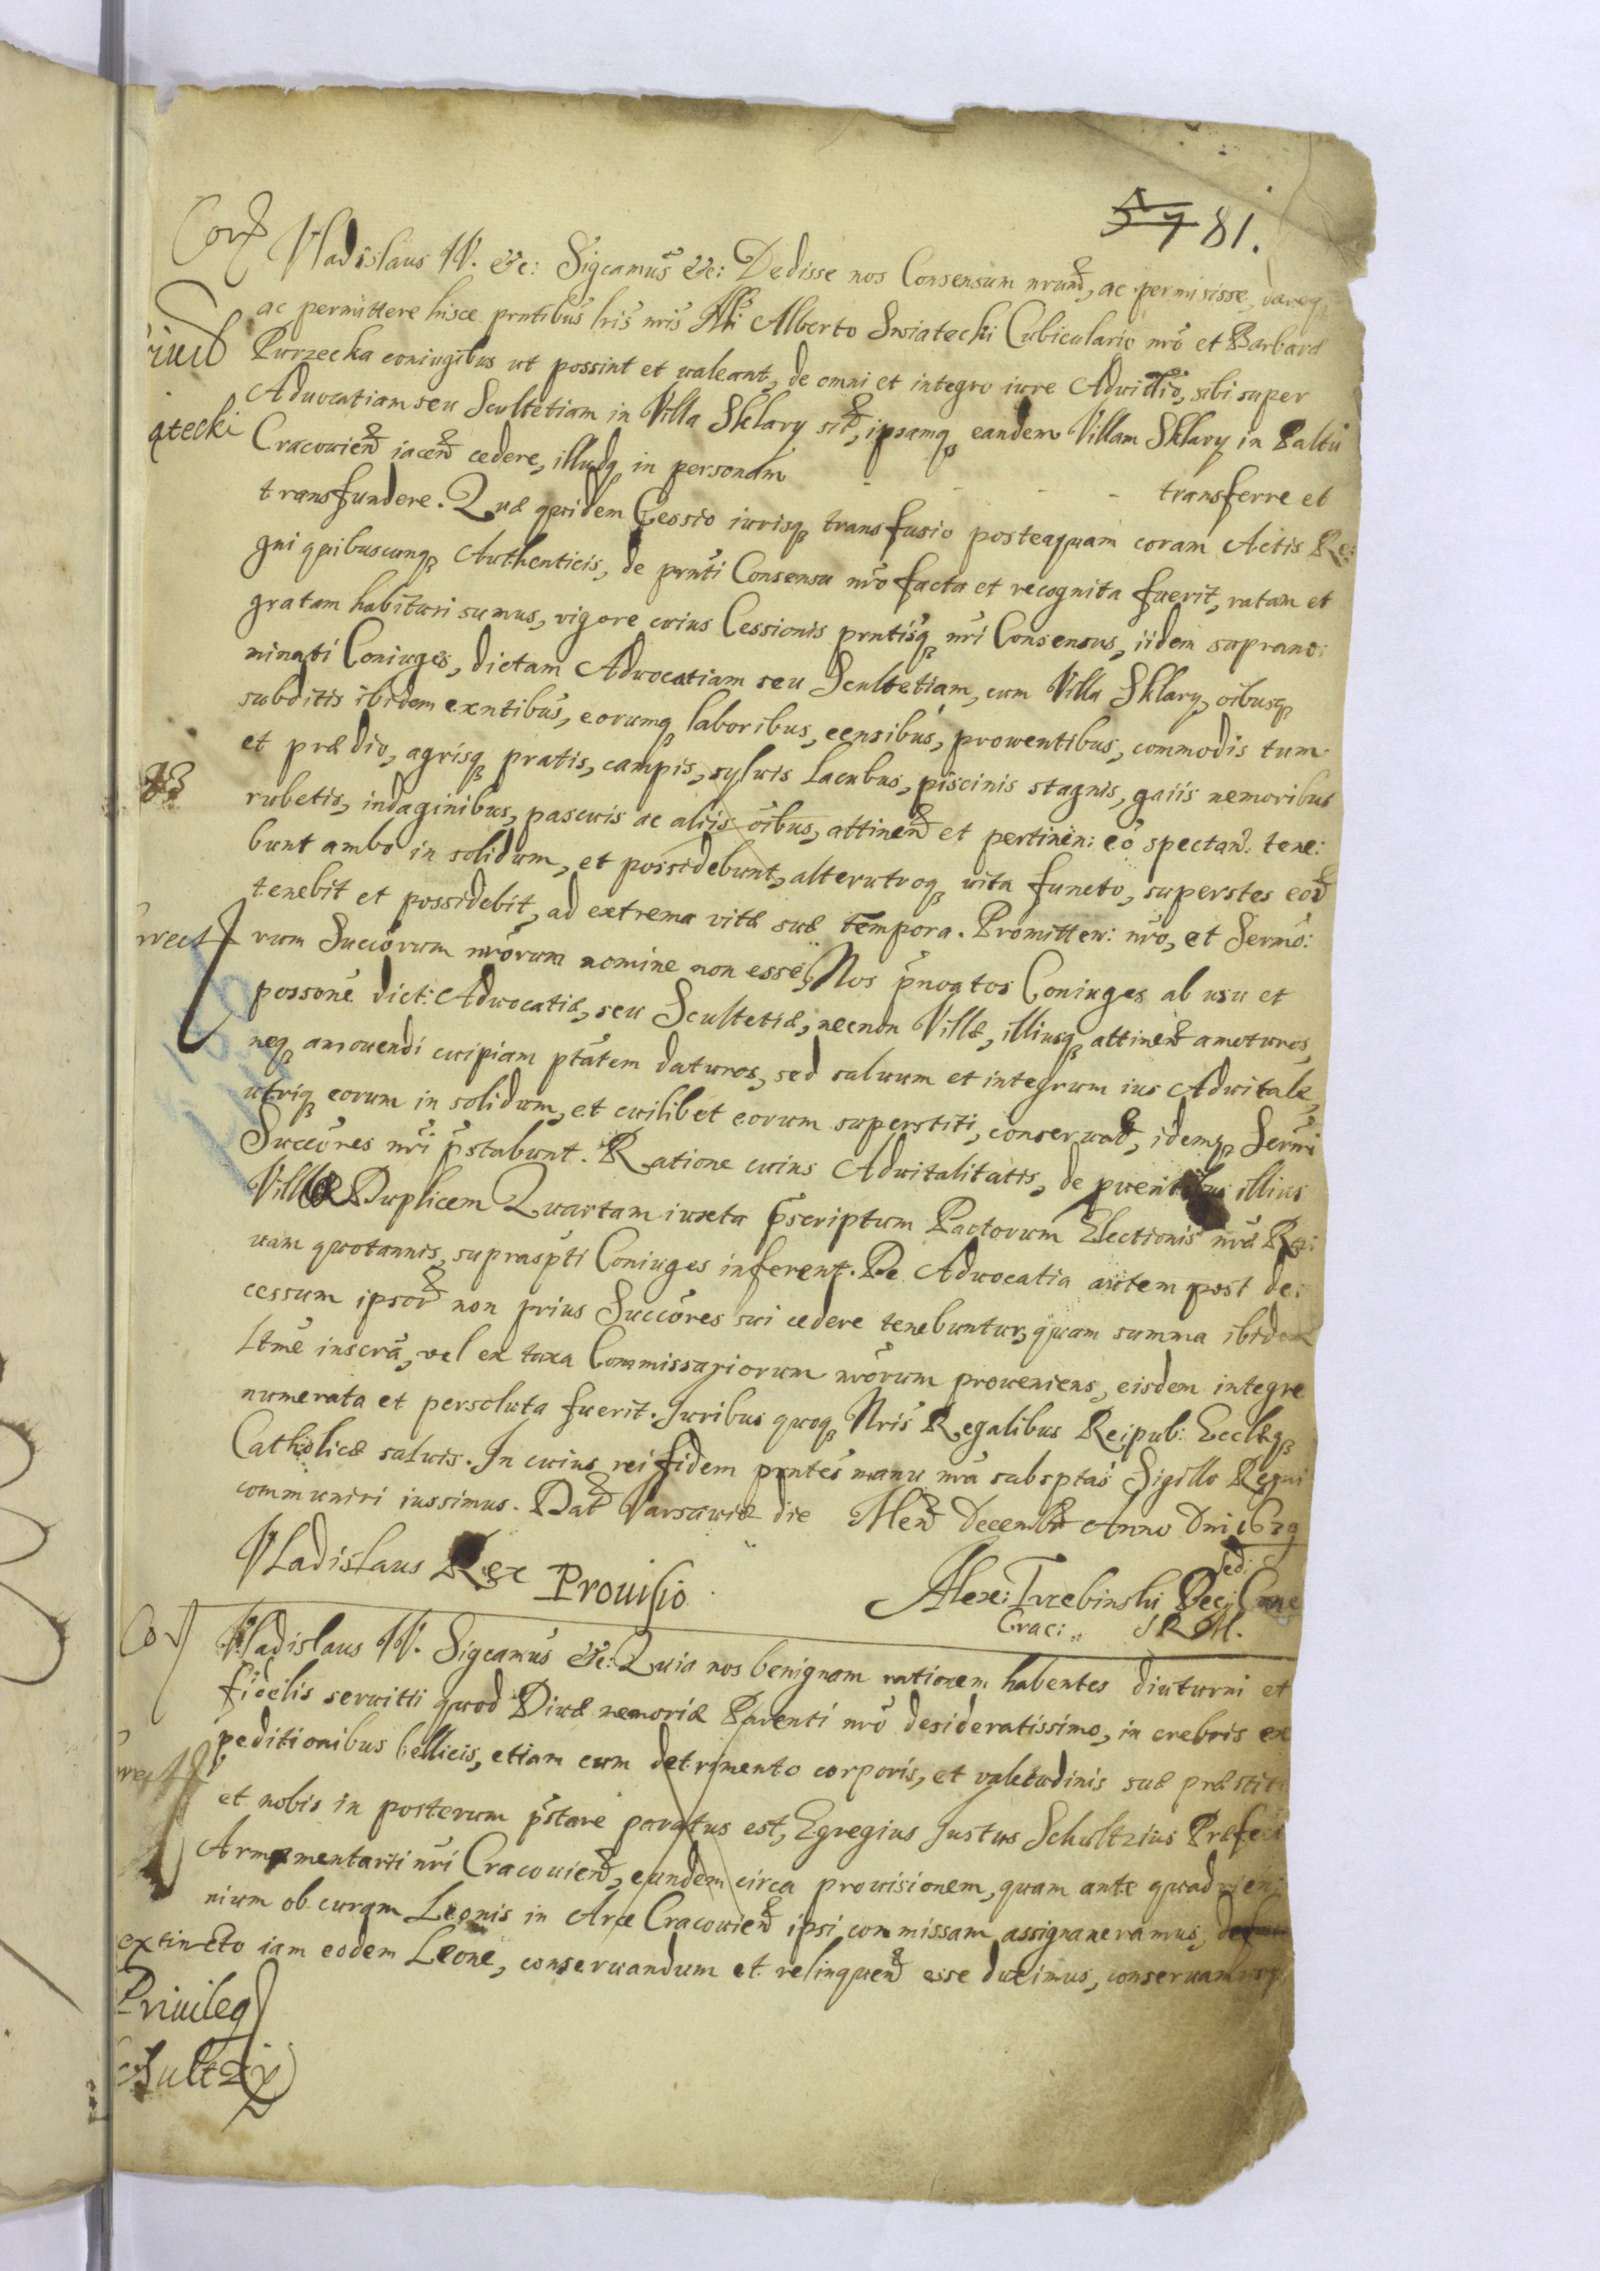 57 81.
Cor
Vladislaus IV. &c: Sigcamus &c: Dedisse nos Consensum nrum, ac permisisse, dareq
ac permittere hisce pntibus lris nris Alberto Swiatecki Cubiculario nro et Barbara
Purzecka coniugibus ut possint et valeant, de omni et integro iure Advitlio, sibi super
Advocatiam seu Scultetiam in Villa Sklary sit, ipsamq eandem Villam Sklary in Paltu
atecki
Cracovien iacen cedere, illudq in personam - - - transferre et
transfundere. Quæ quidem Cessio iurisq transfusio posteaquam coram Actis Re:
gni quibuscunq Authenticis, de pnti Consensu nro facta et recognita fuerit, ratam et
gratam habituri sumus, vigore cuius Cessionis pntisq nri Consensus, iidem suprano:
minati Coniuges, dictam Advocatiam seu Scultetiam, cum Villa Sklary, oibusq
subditis ibidem exntibus, eorumq laboribus, censibus, proventibus, commodis tum
et prædio, agrisq pratis, campis, sylvis lacubus, piscinis stagnis, gaiis nemoribus
rubetis, indaginibus, pascuis ac aliis oibus, attinen et pertinen: eo spectan: tene:
bunt ambo in solidum, et possidebunt, alterutroq vita functo, superstes eor
tenebit et possidebit, ad extrema vitæ suæ tempora. Promitten: nro, et Sermo:
rrect
rum Succorum nrorum nomine non esse, Nos pnoatos Coniuges ab usu et
possone dict: Advocatiæ, seu Scultetiæ, necnon Villæ, illiusq attinen amoturos,
neq amovendi cuipiam ptatem daturos, sed salvum et integrum ius Advitale,
utriq eorum in solidum, et cuilibet eorum superstiti, conservat, idemq Sermi
Succores nri pstabunt. Ratione cuius Advitalitatis, de pventibus illius
Villæ Duplicem Quartam iuxta pscriptum Pactorum Electionis nræ Ra:
vam quotannis, supraspti Coniuges inferent. De Advocatia autem post de:
cessum ipsor non prius Succores sui cedere tenebuntur, quam summa ibidem
ltme inscra, vel ex taxa Commissariorum nrorum proveniens, eisdem integre
numerata et persoluta fuerit. Iuribus quoq Nris Regalibus Reipub: Ecclæq
Catholicæ salvis. In cuius rei fidem pntes manu nra subsptas Sigillo Regni
communiri iussimus. Dat Varsaviæ die Men Decemb Anno Dni 1639
Vladislaus Rex
Provisio
Alex: Trzebinski
Crac: S R M.
Cor
Vladislaus IV. Sigcamus &c: Quia nos benignam rationem habentes diuturni et
fidelis servitii quod Divæ memoriæ Parenti nro desideratissimo, in crebris ex
peditionibus bellicis, etiam cum detrimento corporis, et valetudinis suæ præstit
et nobis in posterum pstare paratus est, Egregius Justus Schultzius Præfect
Armamentarii nri Cracovien, eundem circa provisionem, quam ante quadrien:
nium ob curam Leonis in Arce Cracovien ipsi commissam assignaveramus,
extincto iam eodem Leone, conservandum et relinquen esse duximus, conservamusq
Privileg
chultzii